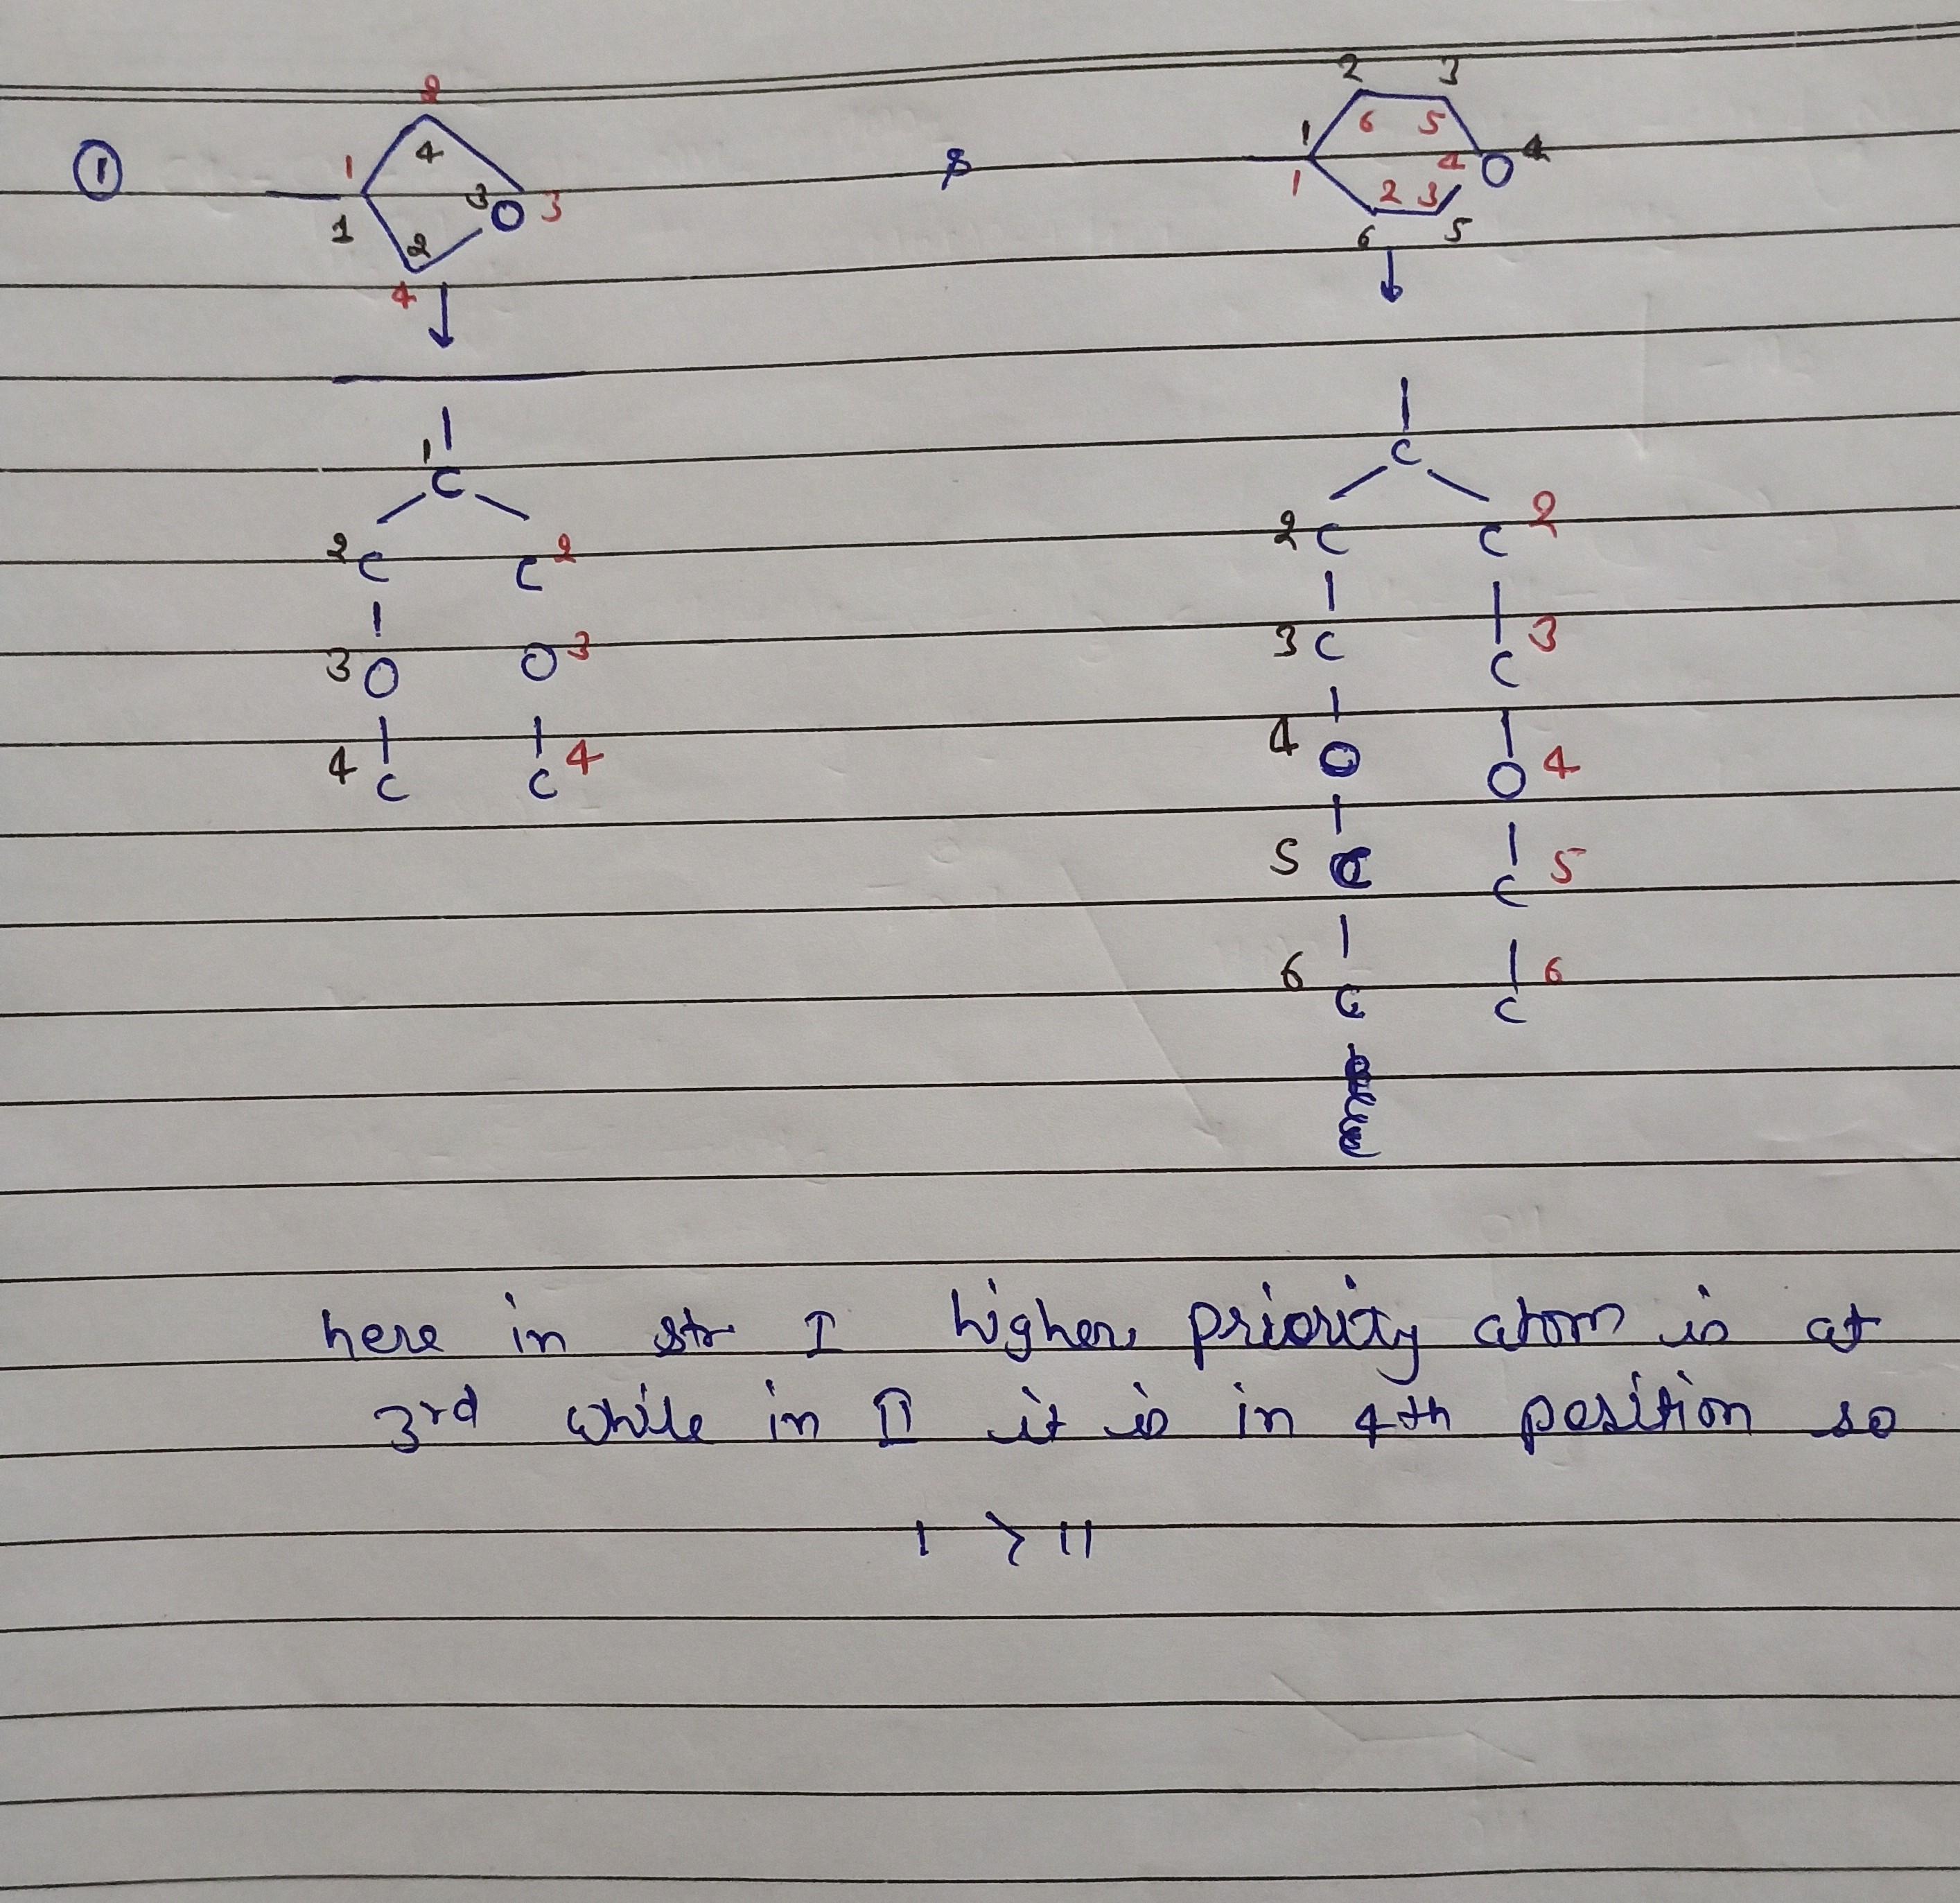 2
2 3
1 4 1 6 5
① 3 O 3 & 4 O 4
1 2 1 2 3
4 6 5
1 C C
2 C C 2 2 C C 2
3 O O 3 3 C C 3
4 C C 4 4 O O 4
5 C C 5
6 C C 6
here in str I higher priority atom is at
3rd while in II it is in 4th position so
I > II